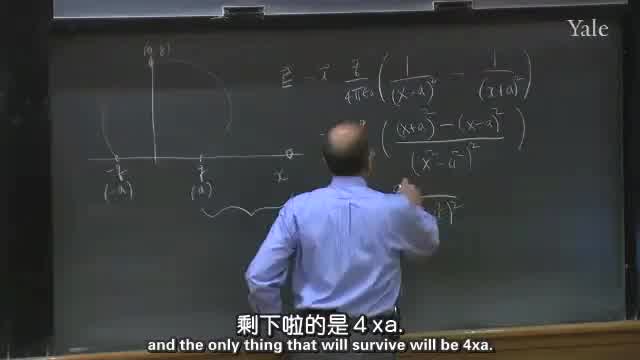 Yale
(0, y)
E = i q/4πε₀ ( 1/(x-a)² - 1/(x+a)² )
( (x+a)² - (x-a)² / (x² - a²)² )
-q q x
(-a) (a)
)²
剩下啦的是4xa.
and the only thing that will survive will be 4xa.